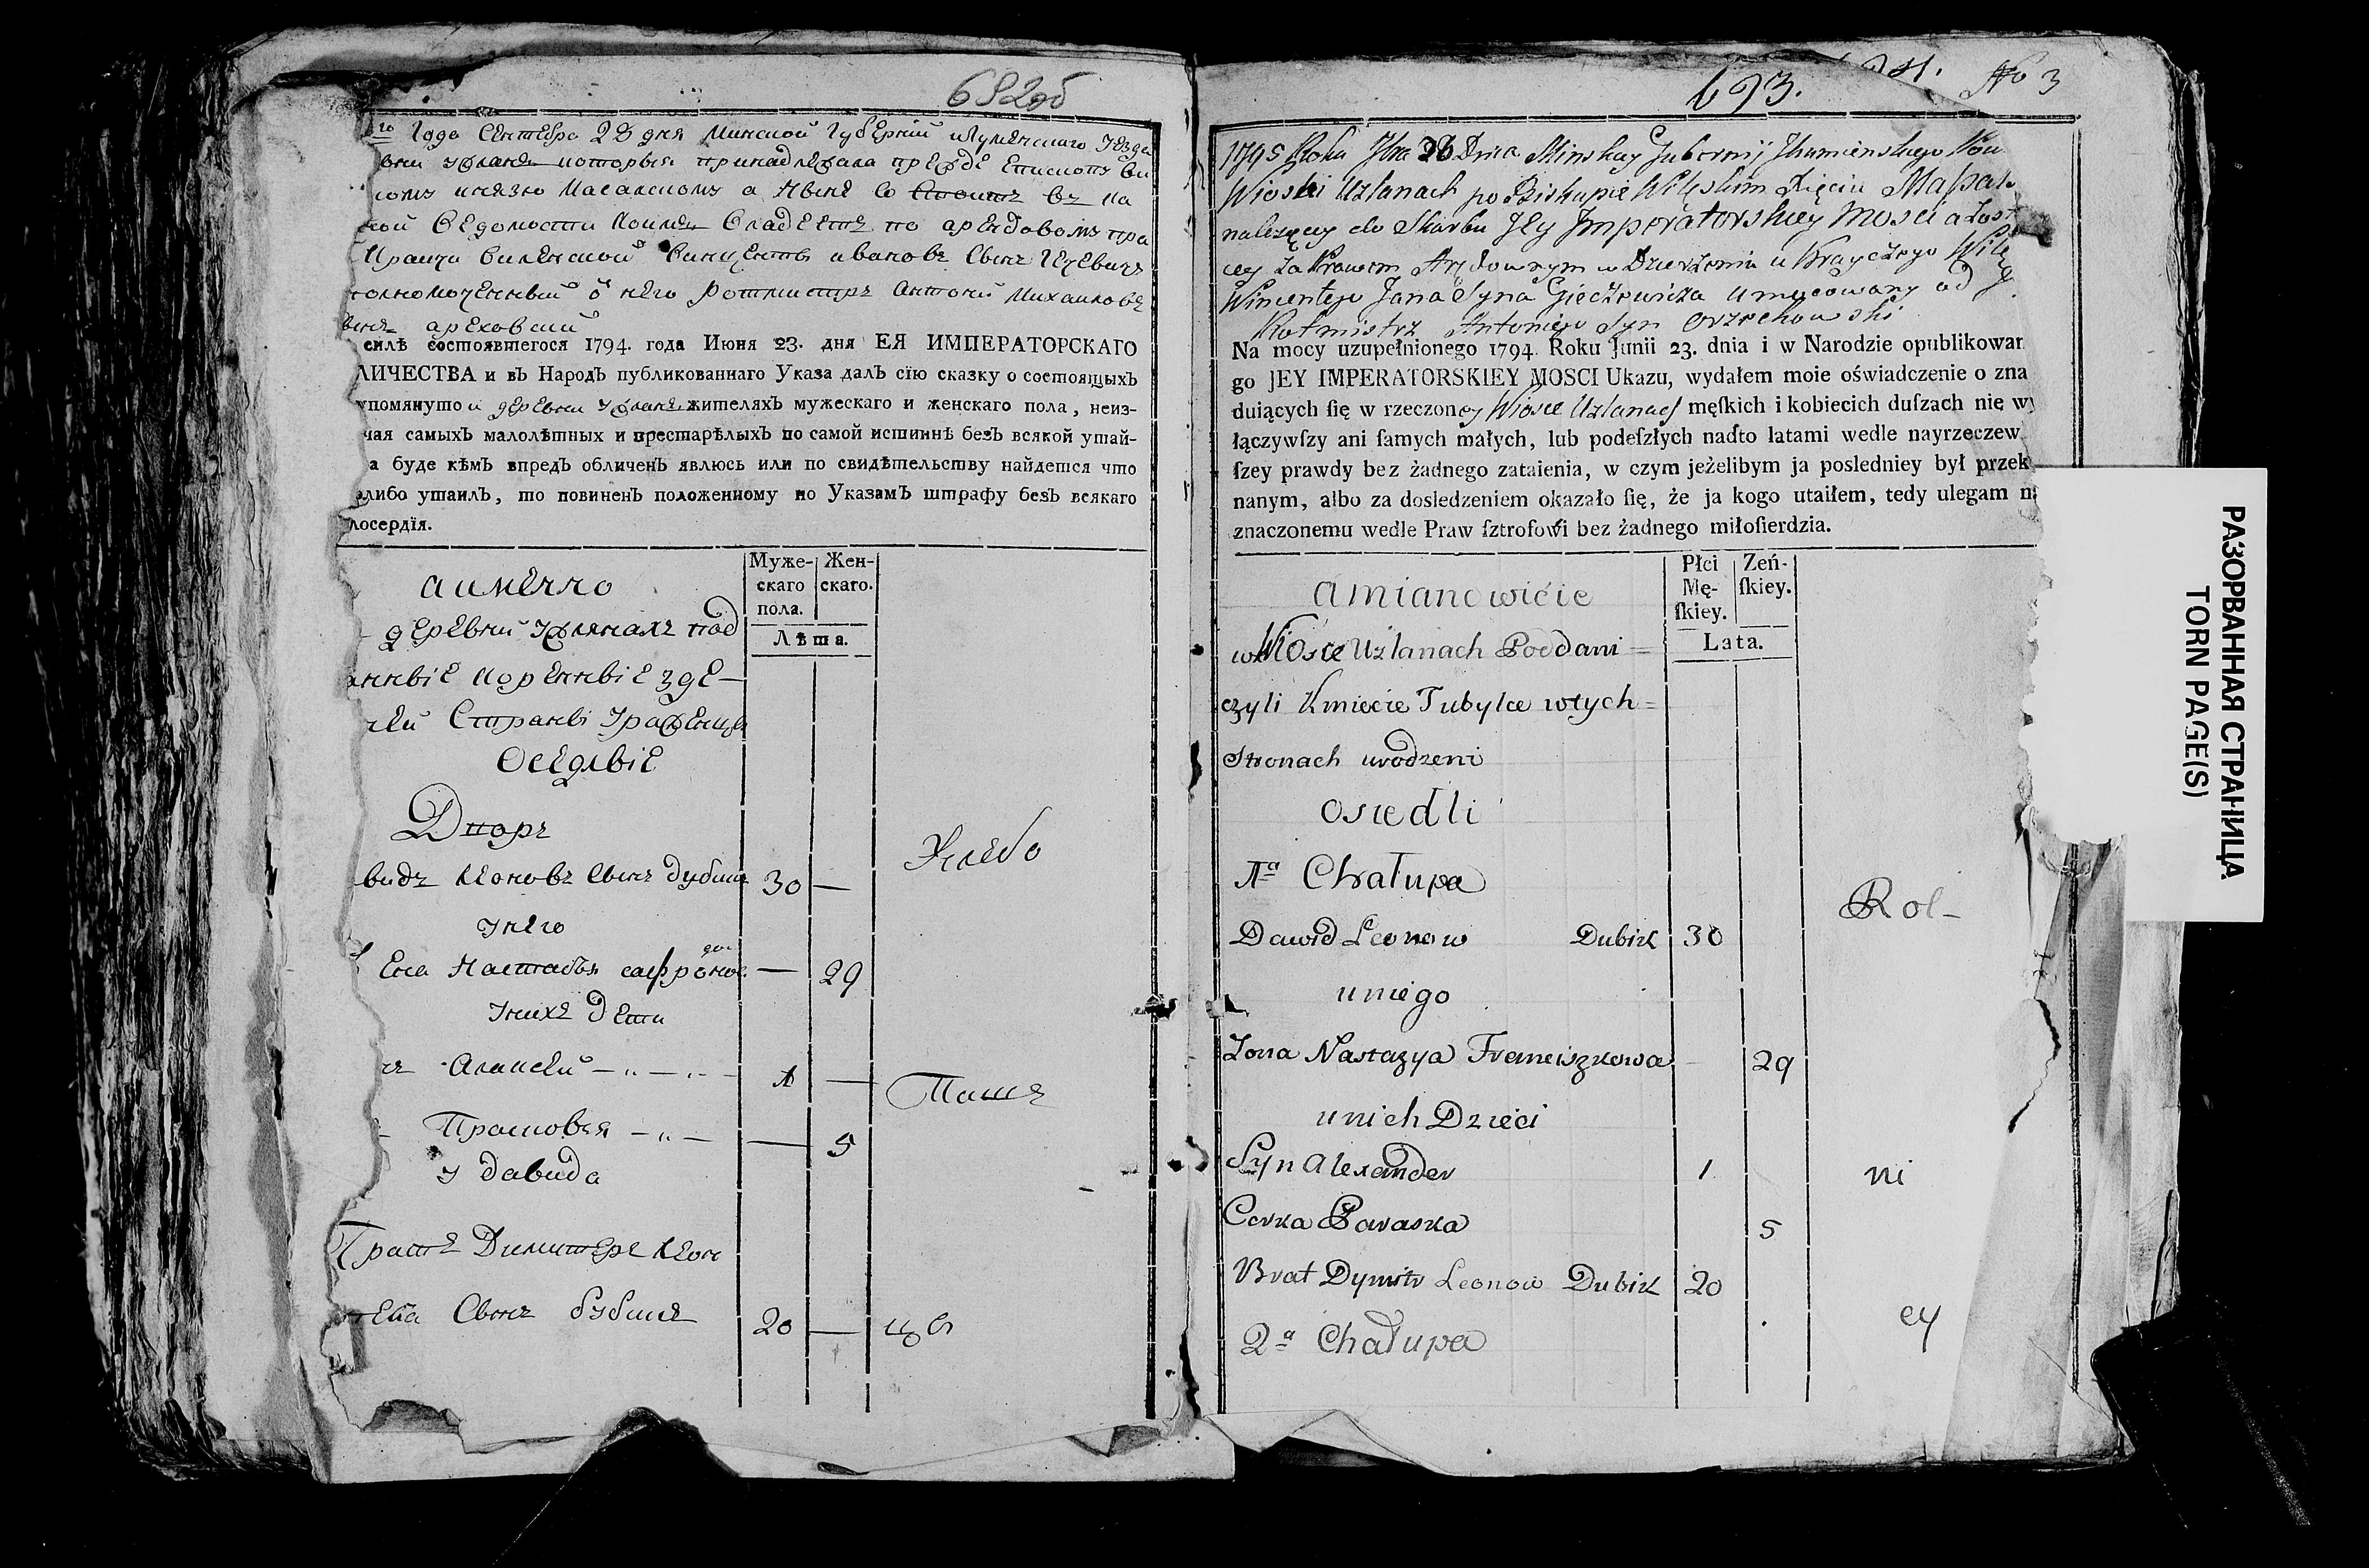 682об
Года Сентебра 28 дня Минской Губерний Игуменского уезда
которыя принадлежала прежде Епископу ви
князю Масалскому а ныне со Стоитъ въ ка
Ведомости коимъ Владеетъ по арендовому пра
Краичи виленской Винцентъ ивановъ Сынъ Гецевичъ
Ротмистръ Антоний Михаиловъ
ареховский
силѣ состоявшегося 1794. года Июня 23. дня ЕЯ ИМПЕРАТОРСКАГО
ЛИЧЕСТВА и въ Народъ публикованнаго Указа далъ сїю сказку о состоящыхъ
упомянутои деревни ужлянъ жителяхъ мужескаго и женскаго пола, неиз-
чая самыхъ малолѣтныхъ и престарѣлыхъ по самой истиннѣ безъ всякой утай-
а буде кѣмъ впредъ обличенъ явлюсь или по свидѣтельству найдется что
либо утаилъ, то повиненъ положенному по Указамъ штрафу безъ всякаго
лосердїя.
Муже-
скаго
пола.
Жен-
скаго.
Лѣта.
а имянно
деревни ужлянахъ под
анныіе коренныіе зде
Страны урожденцы
Оседлыіе
Дворъ
видъ Леоновъ Сынъ дубикъ 30 —
Хлебо
у него
Ена Настасья сафронова доч — 29
у нихъ дети
Алаксей — „ — „ — 1 —
Паше
Прасковья — „ — — 5
у давида
братъ Димитеръ Леон
Сынъ дубикъ 20 —
цы
693. № 3
1795 Roku 7bra 28 Dnia Minskiey Gubernij Ihumienskiego Pow
Wioski Uzlanach po Biskupie Wileskim Xięciu Massals
należący do Skarbu Jey Imperatorskiey Mosci a zost
cey za Prawem Arędownym w Dzierżeniu u Krayczego Wile
Wincentego Jana Syna Gieczewicza umocowany od
Rotmistrz Antoniego Syn Orzechowski
Na mocy uzupełnionego 1794. Roku Junii 23. dnia i w Narodzie opublikowan
go JEY IMPERATORSKIEY MOSCI Ukazu, wydałem moie oświadczenie o zna
duiących ſię w rzeczoney Wiosce Uzlanach męſkich i kobiecich duſzach nie wy
łączywſzy ani ſamych małych, lub podeſzłych nadto latami wedle nayrzeczew
ſzey prawdy bez żadnego zataienia, w czym jeżelibym ja posledniey był przek
nanym, albo za dosledzeniem okazało ſię, że ja kogo utaiłem, tedy ulegam na
znaczonemu wedle Praw ſztrofowi bez żadnego miłoſierdzia.
Płci
Mę-
ſkiey.
Zeń-
ſkiey.
Lata.
a mianowicie
w Wiosce Uzlanach Poddani =
czyli Kmiecie Tubylce w tych =
Stronach urodzeni
osiedli
1a Chałupa
Dawid Leonow Dubik 30
Rol-
u niego
Zona Nastazya Franciszkowa 29
u nich Dzieci
Syn Alexander 1
ni
Corka Paraska 5
Brat Dymitr Leonow Dubik 20
cy
2a Chałupa
РАЗОРВАННАЯ СТРАНИЦА
TORN PAGE(S)